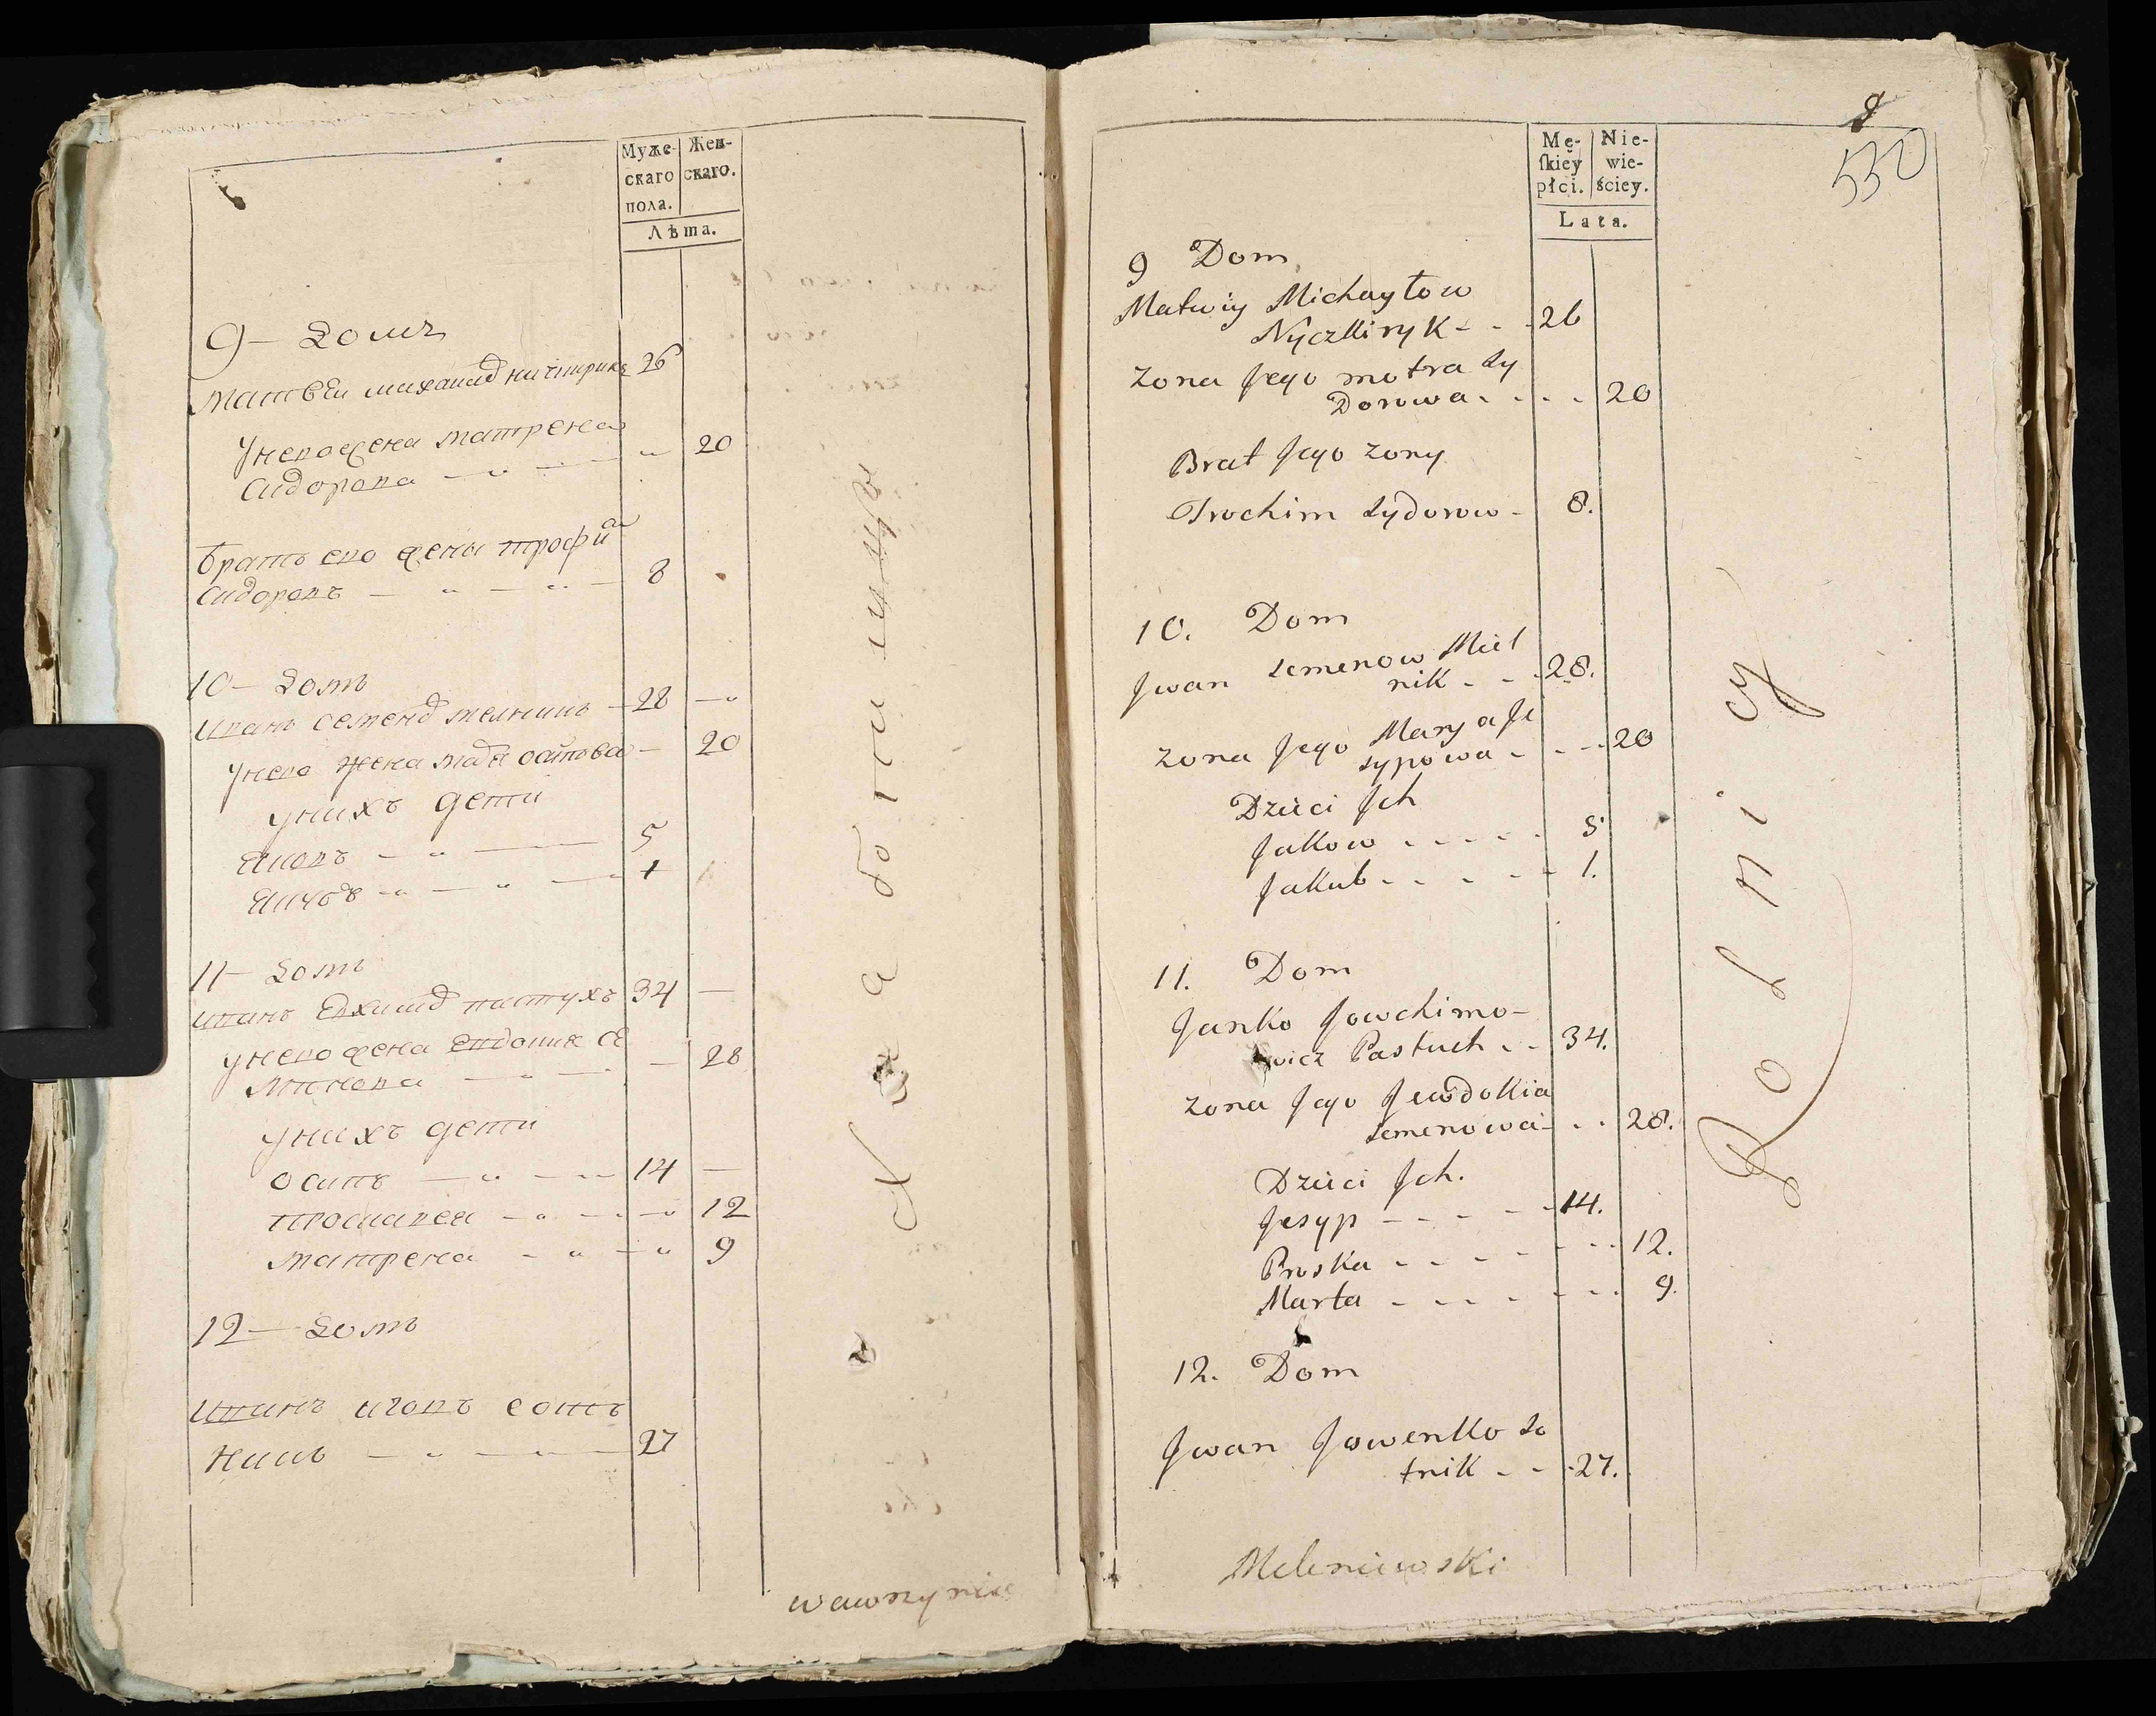 Муже- Жен-
скаго скаго.
пола.
Лѣта.
9 – Домъ
Матвеи михаилов ничиприкъ 26
Унего жена матрена
Сидорова 20
братъ его жены трофим
Сидоровъ 8
10 – Домъ
Иванъ семенов мелникъ 28
Унего жена маря осипова 20
Унихъ дети
Яковъ 5
Якубъ 1
11 – Домъ
Иванъ Евхимов пастухъ 34
Унего жена евдокия се
менова 28
Унихъ дети
осипъ 14
просковея 12
матрена 9
12 – Домъ
Иванъ сотъ
никъ 27
wawrzyniec
8
530
Mę- Nie-
ſkiéy wie-
płci. ściey.
Lata.
9 Dom
Matwiy Michayłow
Nyczkiryk - - - 26
Zona Jego motra Sy
Dorowa - - - 20
Brat Jego Zony
Trochim Sydorow - 8.
10. Dom
Jwan Semenow Miel
nik - - - 28.
Zona Jego Marya Je
sypowa - - - 20
Dzieci Jch
Jakow - - - - 5
Jakub - - - - 1.
11. Dom
Janko Jowchimo-
wicz Pastuch - - 34.
Zona Jego Jewdokia
Semenowa - - - 28.
Dzieci Jch.
Jesyp - - - - 14.
Proska - - - - 12.
Marta - - - - 9.
12. Dom
Jwan Jowenko So
tnik - - - 27.
Rolnicy
Meleniewski